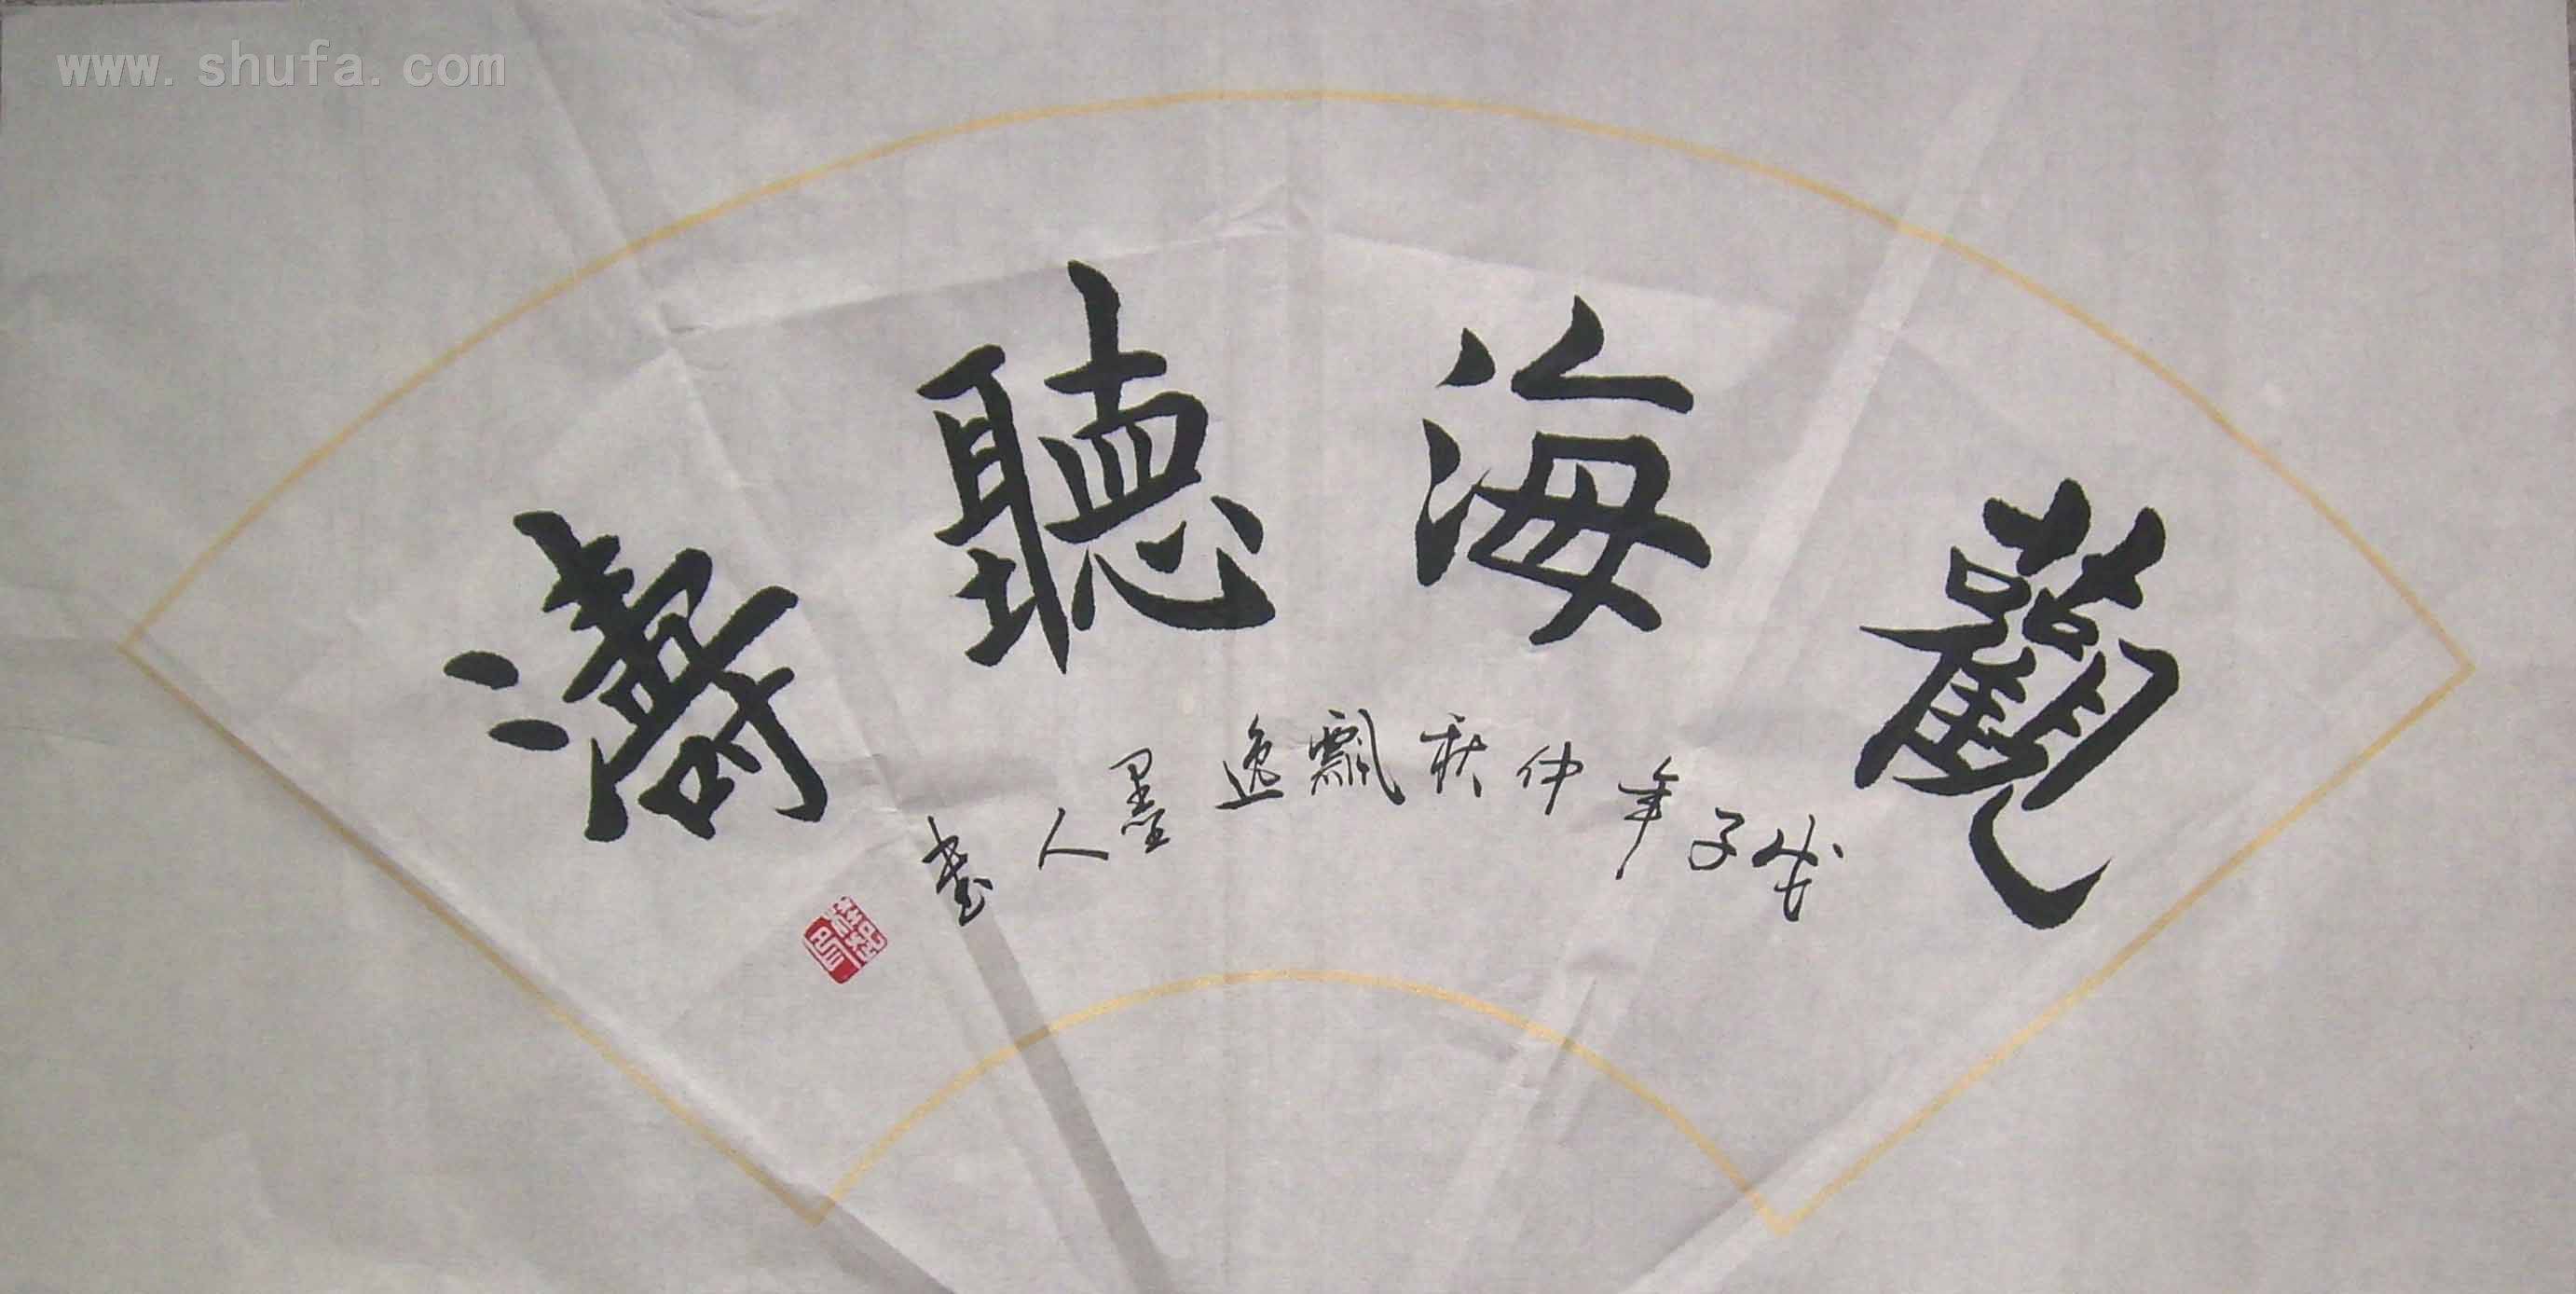 www.shufa.com
觀海聽濤
戊子年仲秋飄逸墨人書